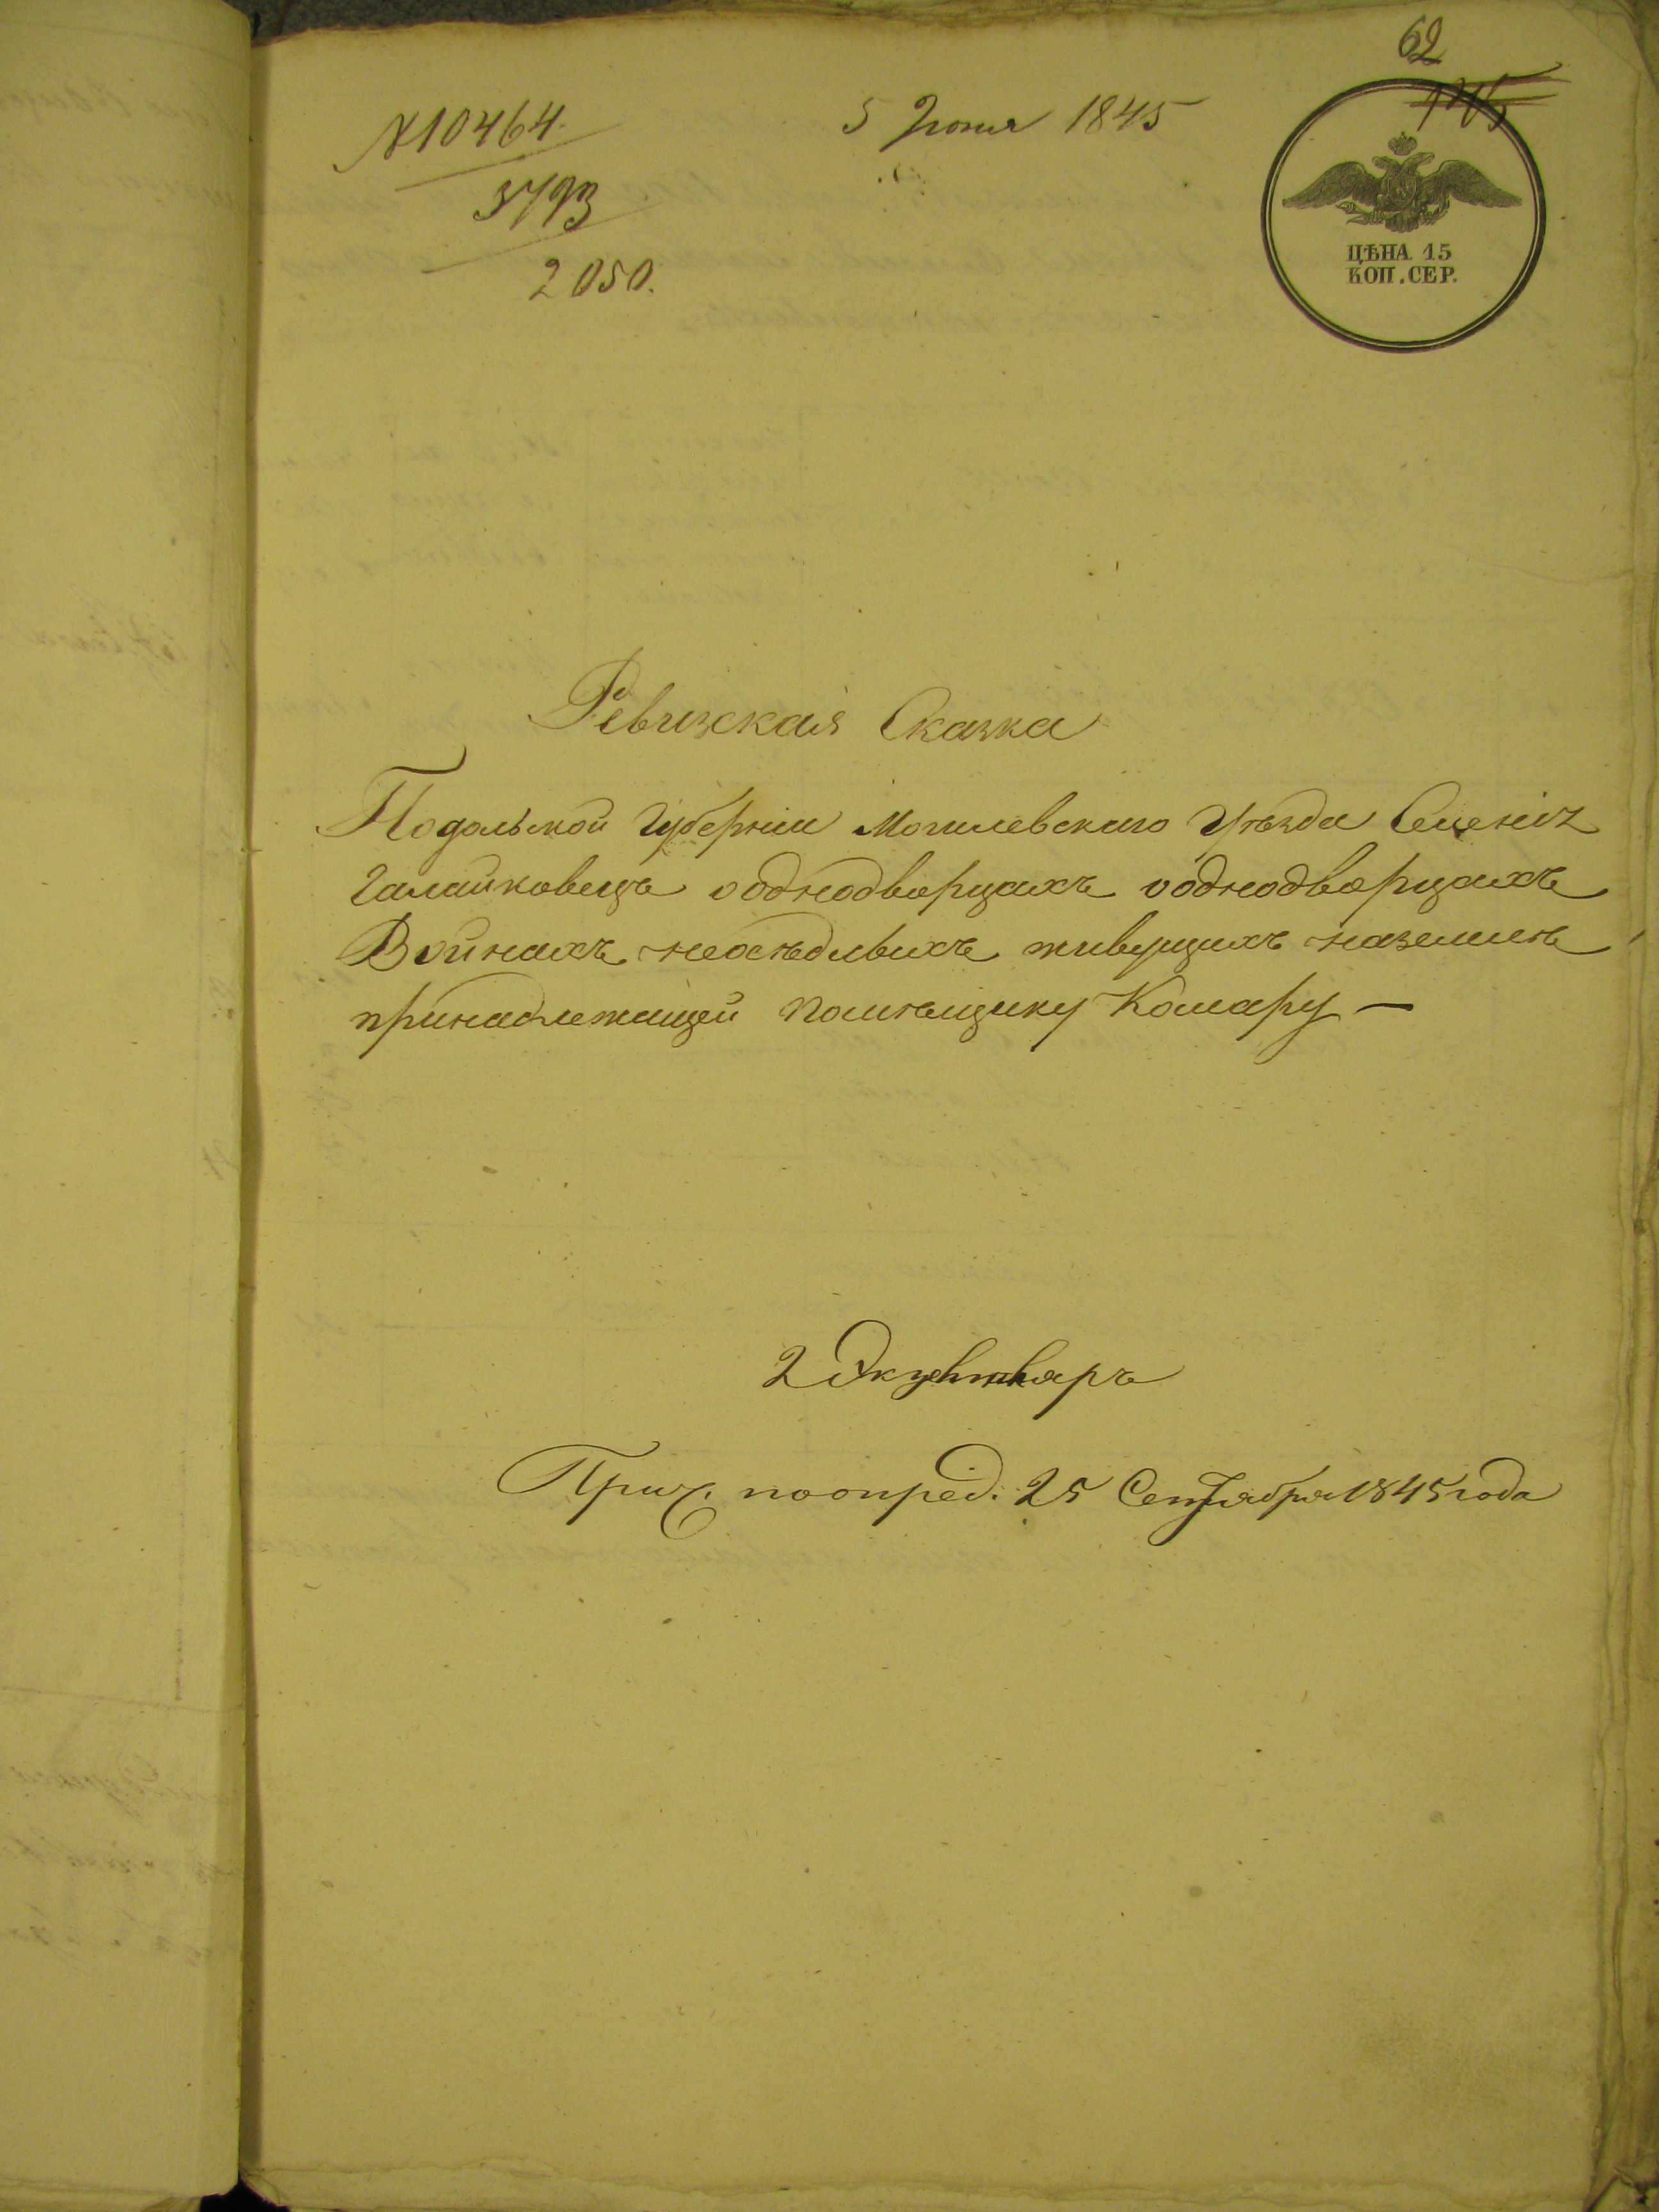 62
№ 10464.
5 Июня 1845
3793
2050.
ЦѢНА 15
КОП. СЕР.
Ревизская Сказка
Подольской Губернии Могилевского Уѣзда Селенія
Галайковецъ ободнодворцахъ ободнодворцахъ
Войнахъ неосѣдлыхъ живущихъ наземлѣ
принадлежащей помѣщику Комару —
2 Экземпляръ
Прич. поопред. 25 Сентября 1845 года